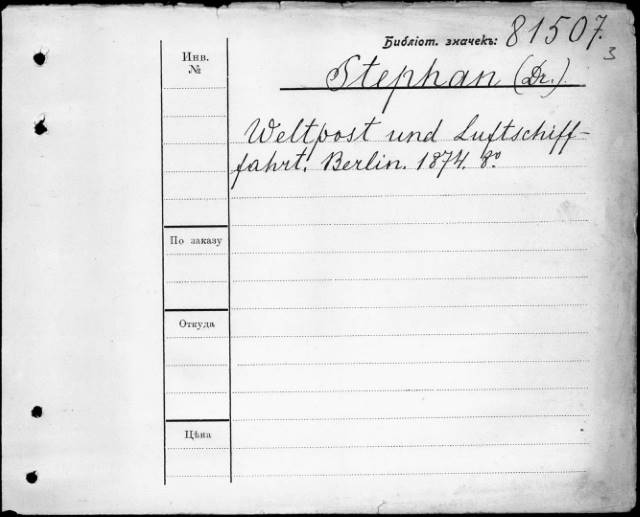 Библіот. значекъ: 81507.
3
Инв.
№
Stephan (Dr.).
Weltpost und Luftschiff-
fahrt. Berlin. 1874. 8º.
По заказу
Откуда
Цѣна